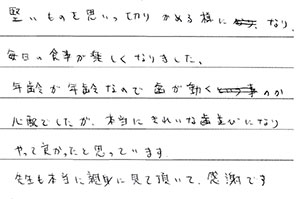 堅いものを思いっ切りかめる様になり、
毎日の食事が楽しくなりました。
年齢が年齢なので歯が動くのか
心配でしたが、本当にきれいな歯並びになり
やって良かったと思っています。
先生も本当に親身に見て頂いて、感謝です